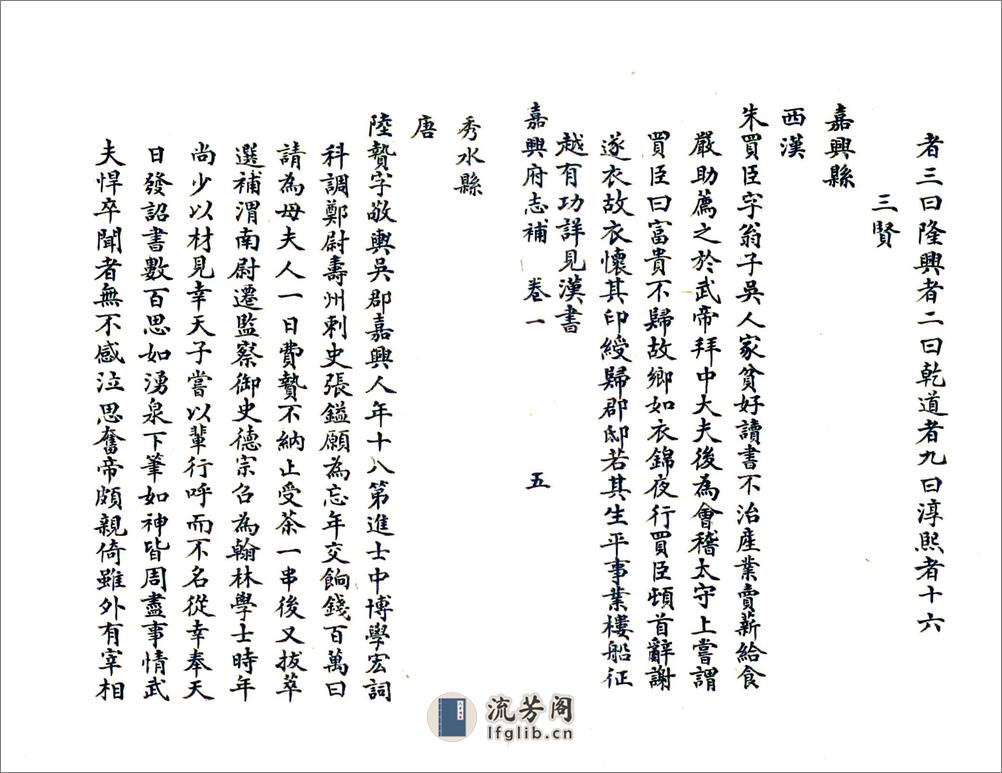 者三曰隆興者二曰乾道者九曰淳熙者十六
三賢
嘉興縣
西漢
朱買臣字翁子吳人家貧好讀書不治産業賣薪給食
嚴助薦之於武帝拜中大夫後為會稽太守上嘗謂
買臣曰富貴不歸故鄉如衣錦夜行買臣頓首辭謝
遂衣故衣懷其印綬歸郡邸若其生平事業樓船征
越有功詳見漢書
嘉興府志補 卷一 五
秀水縣
唐
陸贄字敬輿吳郡嘉興人年十八第進士中博學宏詞
科調鄭尉壽州刺史張鎰願為忘年交餉錢百萬曰
請為母夫人一日費贄不納止受茶一串後又拔萃
選補渭南尉遷監察御史德宗召為翰林學士時年
尚少以材見幸天子嘗以輩行呼而不名從幸奉天
日發詔書數百思如湧泉下筆如神皆周盡事情武
夫悍卒聞者無不感泣思奮帝頗親倚雖外有宰相
流芳阁
lfglib.cn